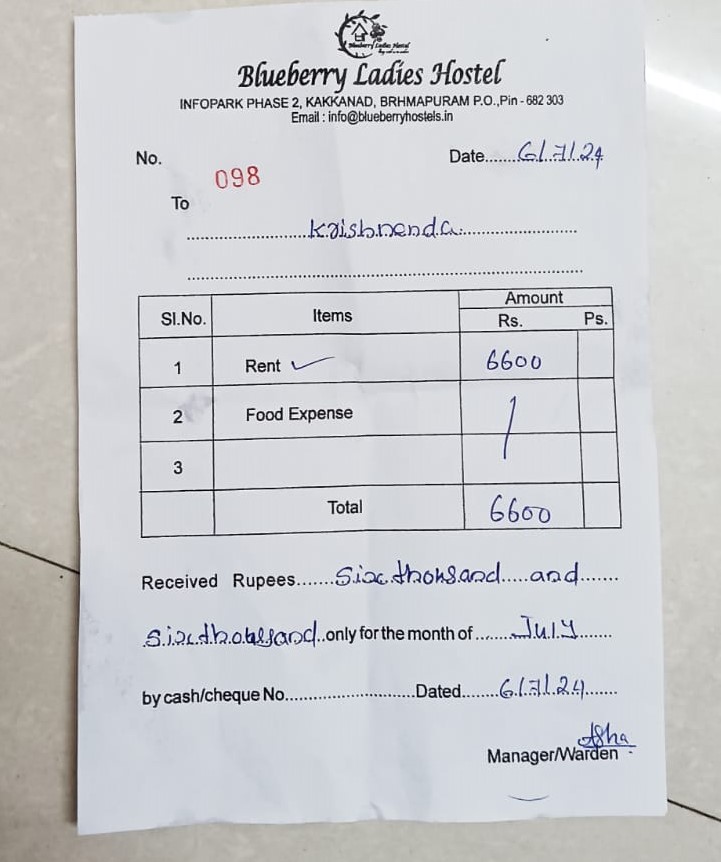 Blueberry Ladies Hostel
Blueberry Ladies Hostel
INFOPARK PHASE 2, KAKKANAD, BRHMAPURAM P.O.,Pin - 682 303
Email : info@blueberryhostels.in
No. 098 Date.......6/7/24
To
Krishnenda
Sl.No. Items Amount
Rs. Ps.
1 Rent ✓ 6600
2 Food Expense /
3
Total 6600
Received Rupees.......Six thousand.....and.......
Six thousand..only for the month of.......July.......
by cash/cheque No..............................Dated.......6/7/24.......
Asha
Manager/Warden